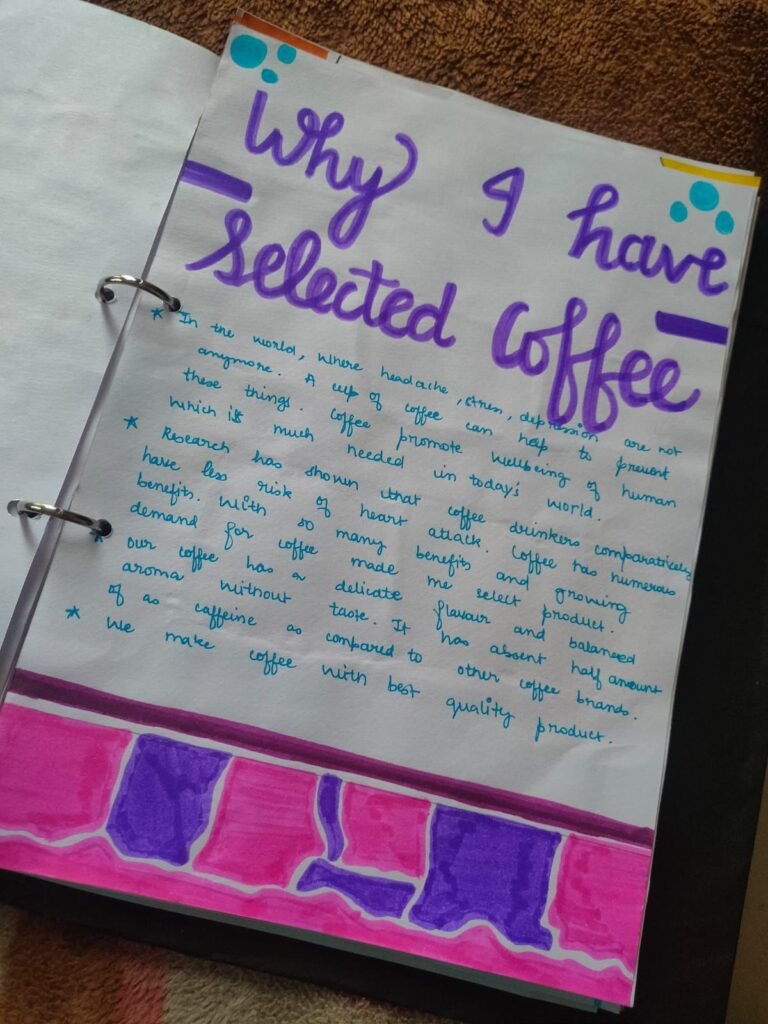 Why I have
selected Coffee
* In the world, where headache, stress, depression are not
anymore. A cup of coffee can help to prevent
these things. Coffee promote wellbeing of human
which is much needed in today's world.
* Research has shown that coffee drinkers comparatively
have less risk of heart attack. Coffee has numerous
benefits. With so many benefits and growing
demand for coffee made me select product.
* Our coffee has a delicate flavour and balanced
aroma without taste. It has absent half amount
of as caffeine as compared to other coffee brands.
* We make coffee with best quality product.